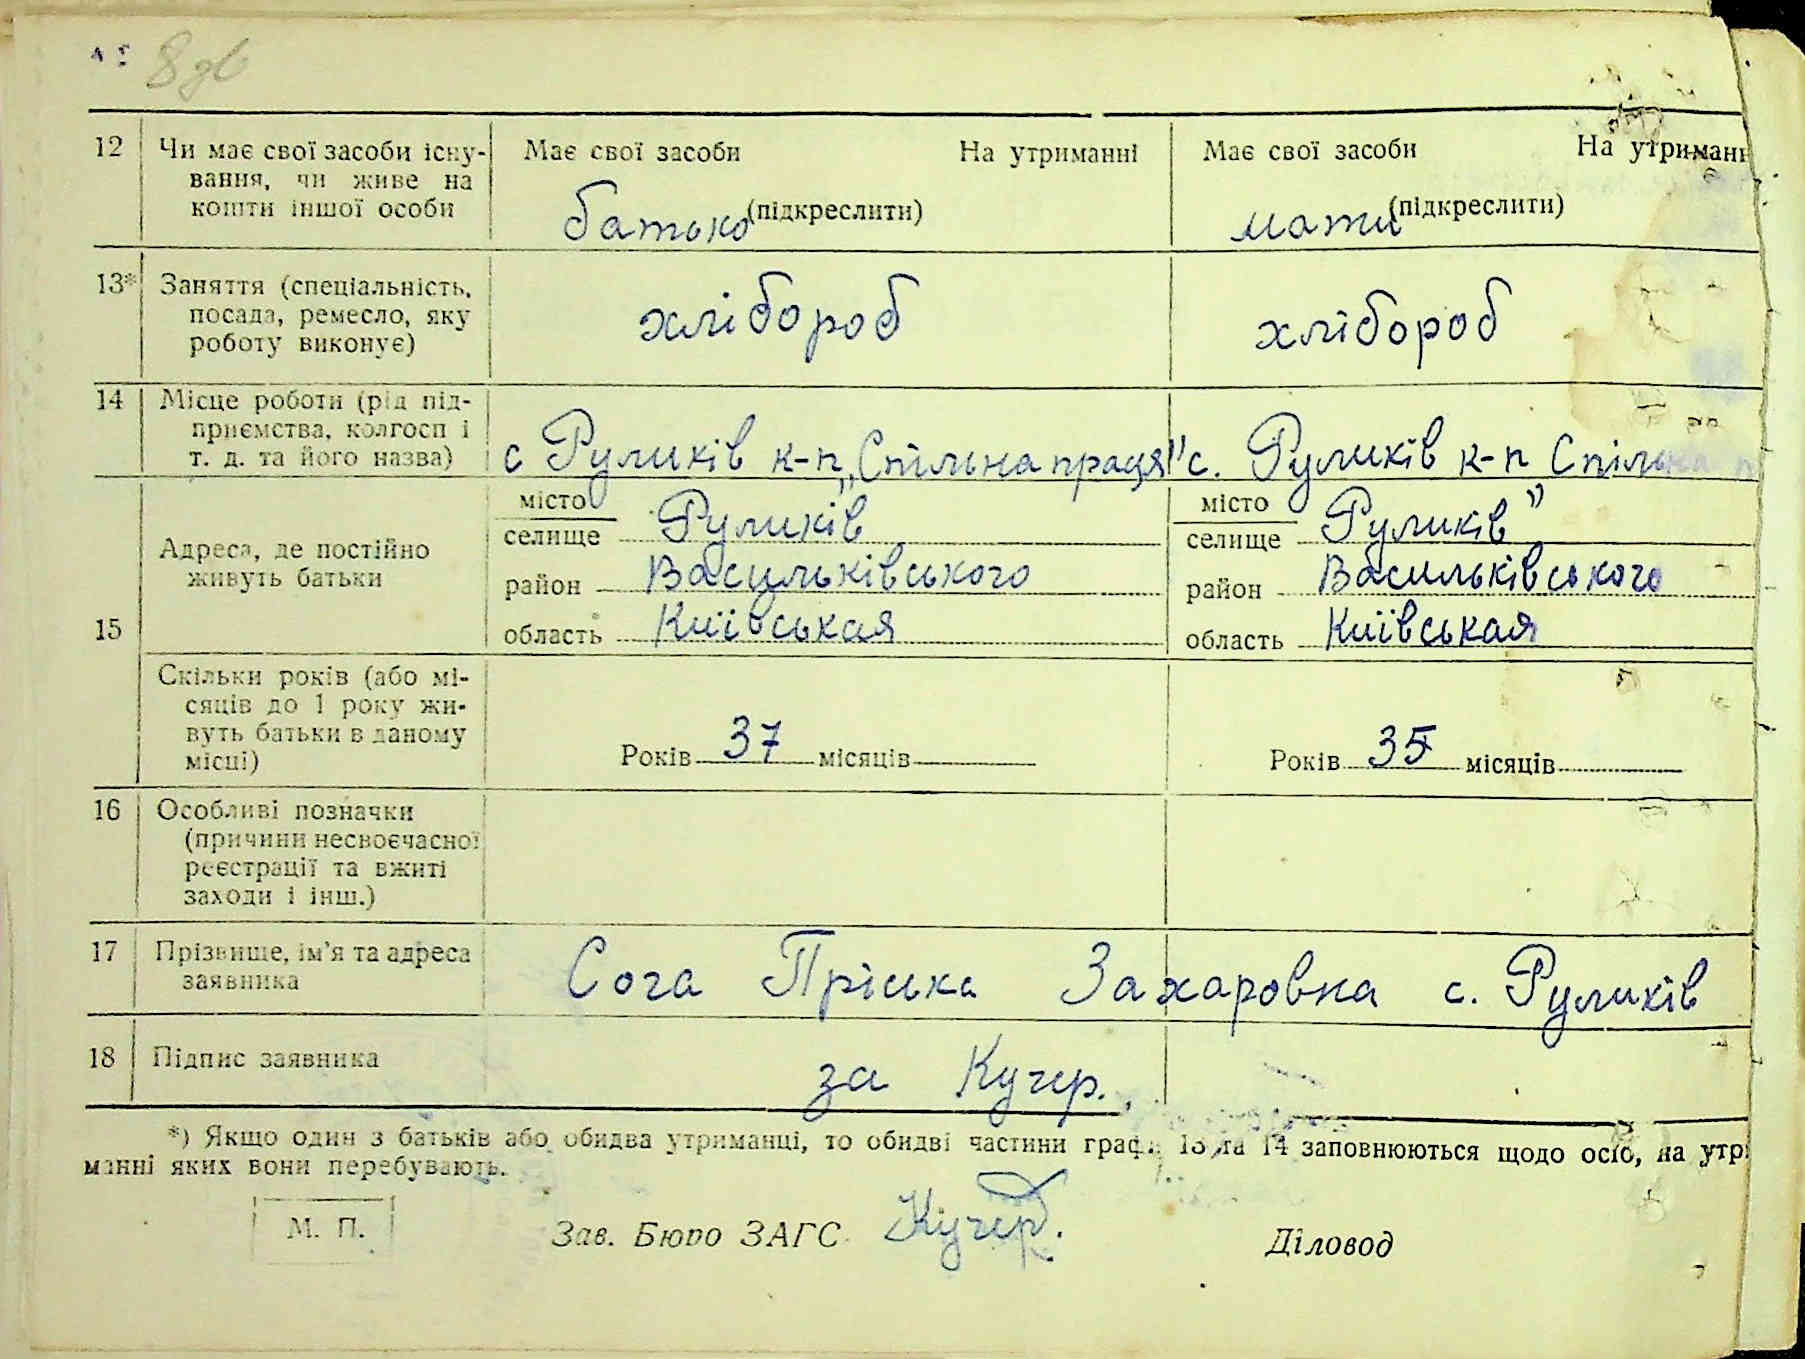 8 зв
12 Чи має свої засоби існу- Має свої засоби На утриманні Має свої засоби На утриманн
вання, чи живе на
кошти іншої особи батько (підкреслити) мати (підкреслити)
13* Заняття (спеціальність,
посада, ремесло, яку хлібороб хлібороб
роботу виконує)
14 Місце роботи (рід під-
приємства, колгосп і
т. д. та його назва) с Руликів к-п „Спільна праця" с. Руликів к-п Спільна п
місто місто "
селище Руликів селище Руликів
Адреса, де постійно
живуть батьки район Васильківського район Васильківського
15 область Київськая область Київськая
Скільки років (або мі-
сяців до 1 року жи-
вуть батьки в даному
місці) Років 37 місяців Років 35 місяців
16 Особливі позначки
(причини несвоєчасної
реєстрації та вжиті
заходи і інш.)
17 Прізвище, ім'я та адреса
заявника Сога Пріська Захаровка с. Руликів
18 Підпис заявника за Кучер.
*) Якщо один з батьків або обидва утриманці, то обидві частини граф. 13 та 14 заповнюються щодо осіб, на утр
манні яких вони перебувають.
М. П. Зав. Бюро ЗАГС Кучер. Діловод